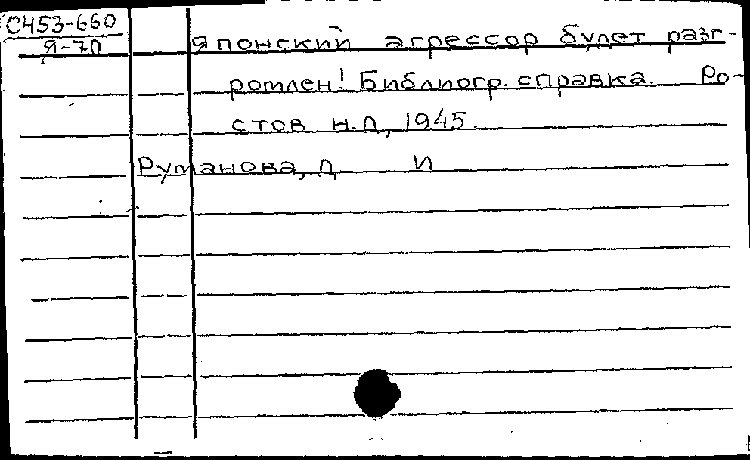 С453-660
Я-70
Японский агрессор будет разг-
ромлен! Библиогр. справка. Ро-
стов н.Д, 1945.
Руманова, Д И